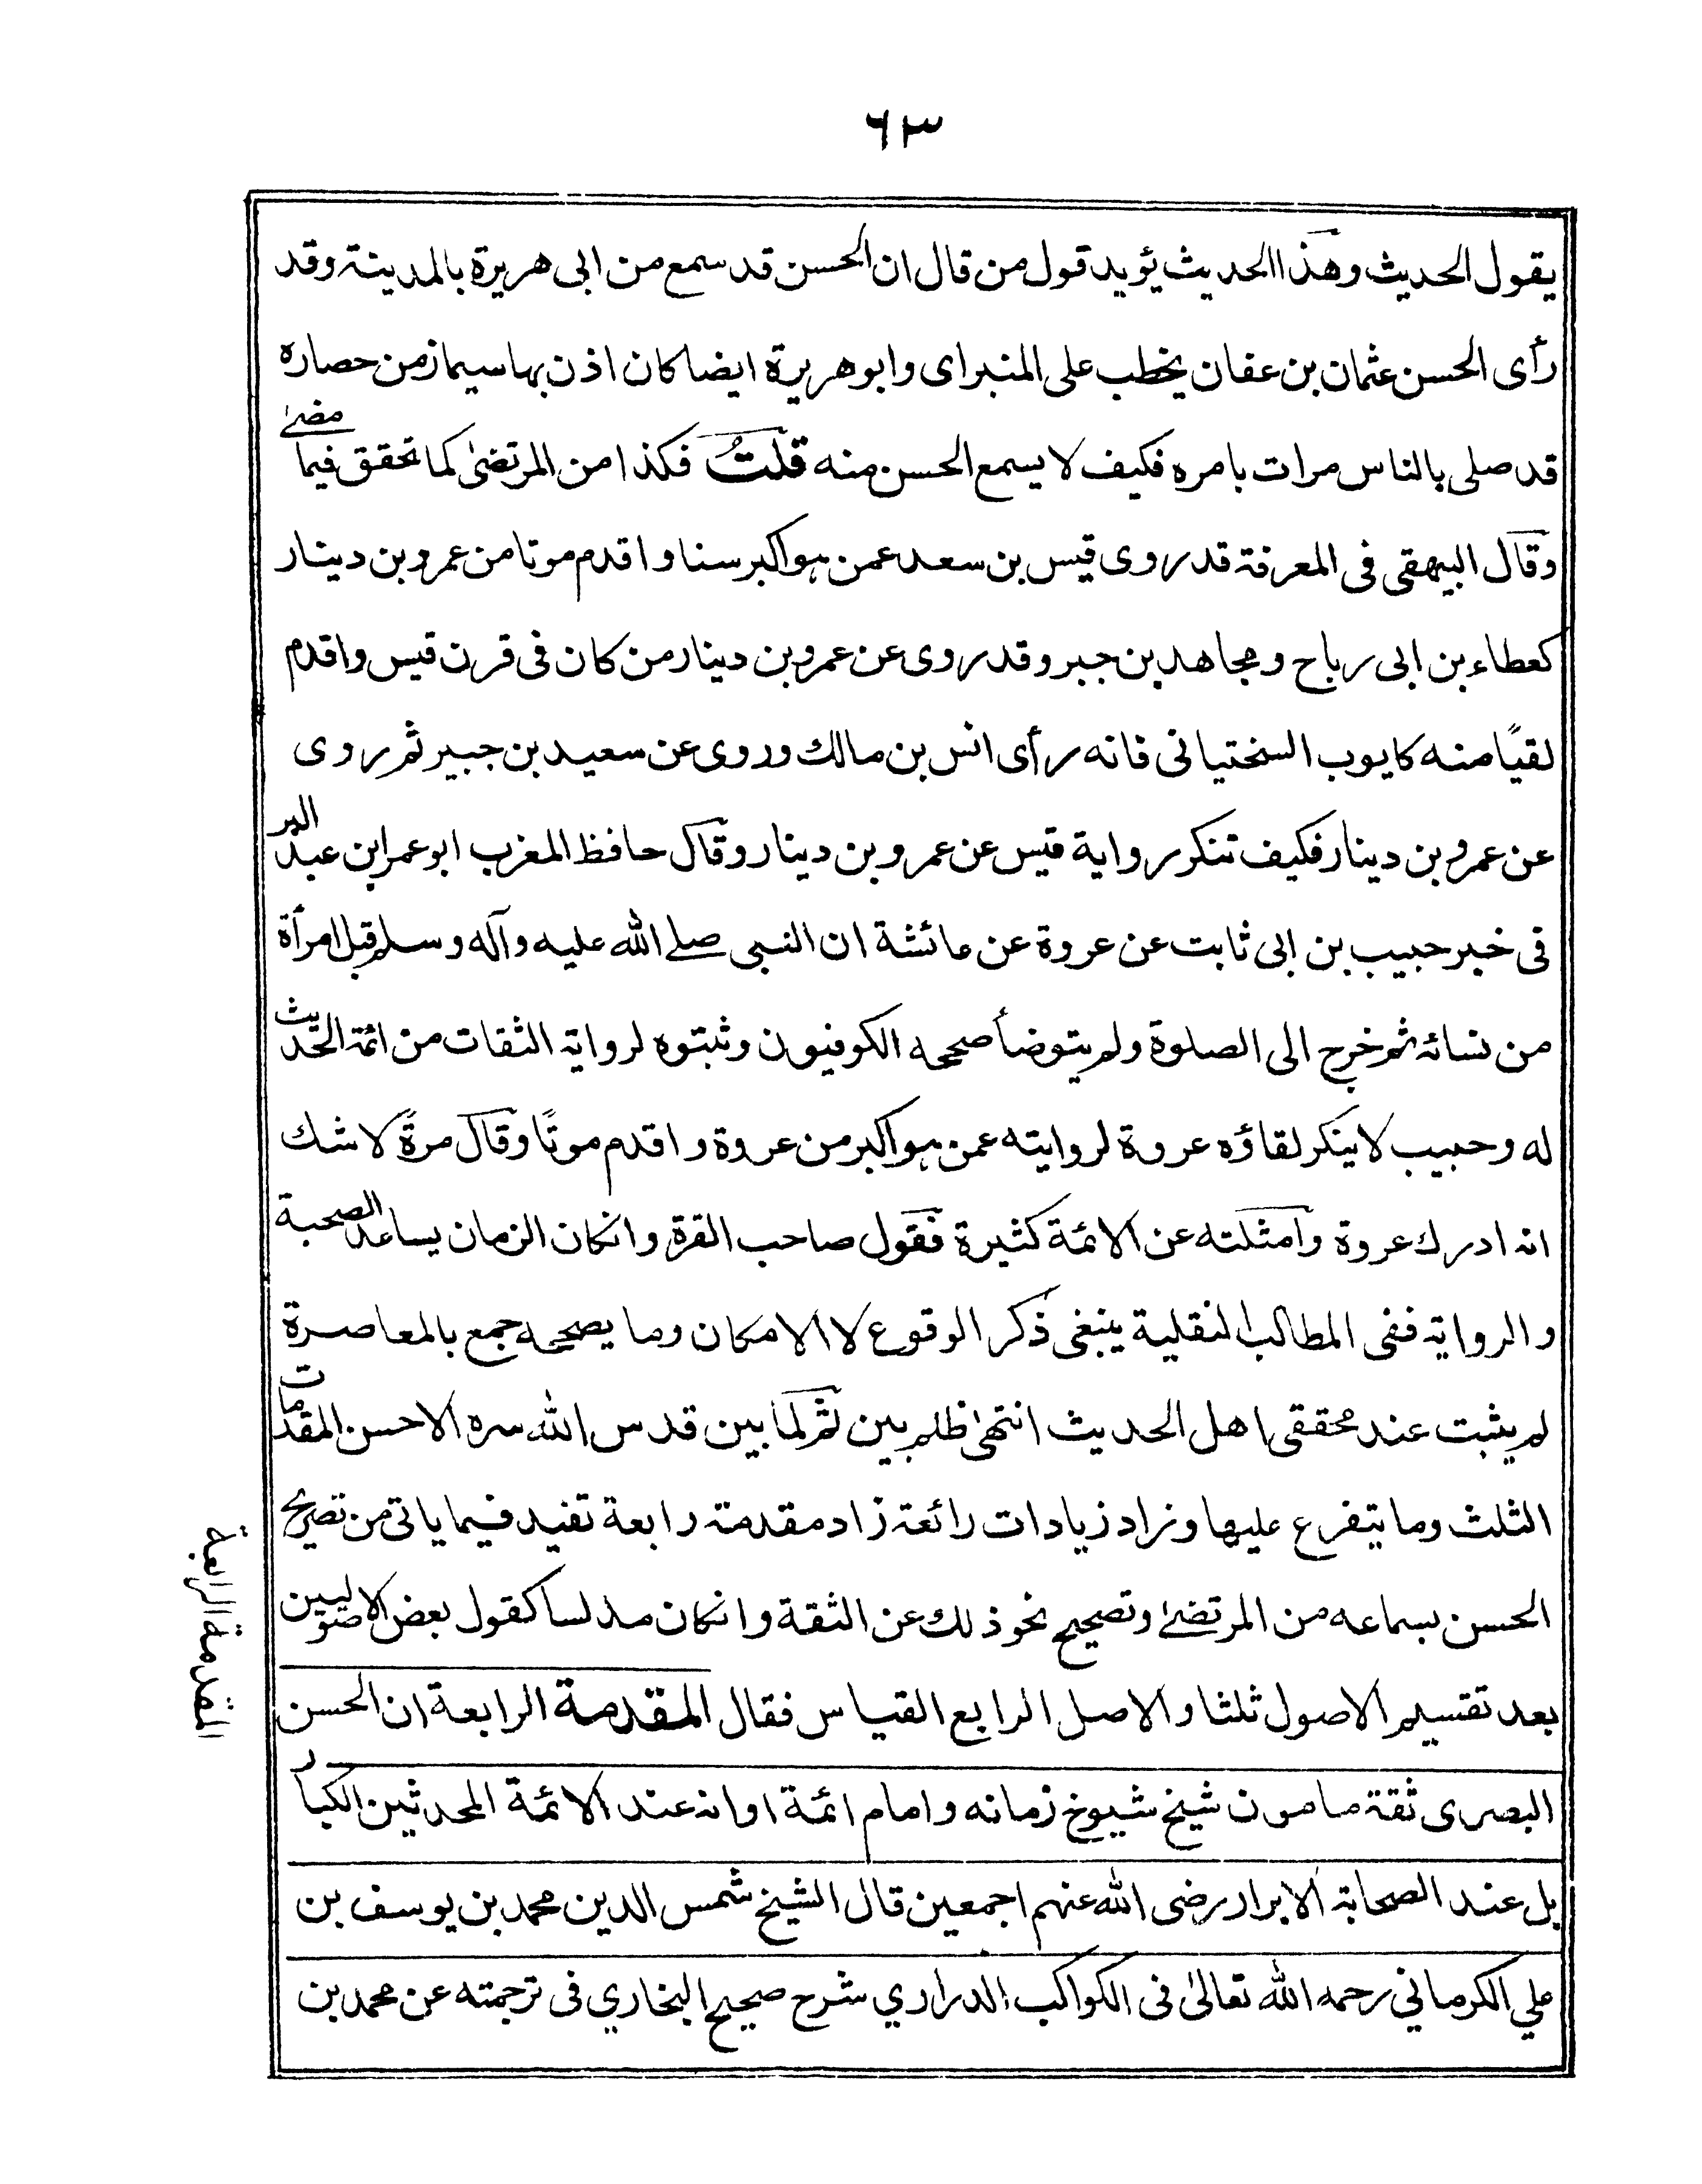 ٦٣
يقول الحديث وهذا الحديث يؤيد قول من قال ان الحسن قد سمع من ابى هريرة بالمدينة وقد
رأى الحسن عثمان بن عفان يخطب على المنبر اى وابوهريرة ايضا كان اذن بها سيما زمن حصاره
قد صلى بالناس مرات بامره فكيف لا يسمع الحسن منه قلت فكذا من المرتضىٰ كما تحقق فيما مضىٰ
وقال البيهقى فى المعرفة قد روى قيس بن سعد عمن هو اكبر سنا واقدم موتا من عمرو بن دينار
كعطاء بن ابى رباح ومجاهد بن جبر وقد روى عن عمرو بن دينار من كان فى قرن قيس واقدم
لقيًا منه كايوب السختيانى فانه رأى انس بن مالك وروى عن سعيد بن جبير ثم روى
عن عمرو بن دينار فكيف تنكر رواية قيس عن عمرو بن دينار وقال حافظ المغرب ابو عمر ابن عبد البر
فى خبر حبيب بن ابى ثابت عن عروة عن عائشة ان النبى صلے الله عليه وآله وسلم قبل امرأة
من نسائه ثم خرج الى الصلوة ولم يتوضأ صححه الكوفيون وثبتوه لرواية الثقات من ائمة الحديث
له وحبيب لا ينكر لقاؤه عروة لروايته عمن هو اكبر من عروة واقدم موتًا وقال مرةً لا شك
انه ادرك عروة وامثلته عن الائمة كثيرة فقول صاحب القرة وانكان الزمان يساعد الصحبة
والرواية ففى المطالب النقلية ينبغى ذكر الوقوع لا الامكان وما يصححه جمع بالمعاصرة
لم يثبت عند محققى اهل الحديث انتهىٰ ظلم بين ثم لما بين قدس الله سره الاحسن المقدمات
الثلث وما يتفرع عليها وزاد زيادات رائعة زاد مقدمة رابعة تفيد فيما ياتى من تصريح
الحسن بسماعه من المرتضىٰ وتصحيح نحو ذلك عن الثقة وانكان مدلسا كقول بعض الاصوليين
بعد تقسيم الاصول ثلثا والاصل الرابع القياس فقال المقدمة الرابعة ان الحسن
المقدمة الرابعة
البصرى ثقة مامون شيخ شيوخ زمانه وامام ائمة اوانه عند الائمة المحدثين الكبار
بل عند الصحابة الابرار رضى الله عنهم اجمعين قال الشيخ شمس الدين محمد بن يوسف بن
علي الكرماني رحمه الله تعالىٰ فى الكواكب الدراري شرح صحيح البخاري فى ترجمته عن محمد بن